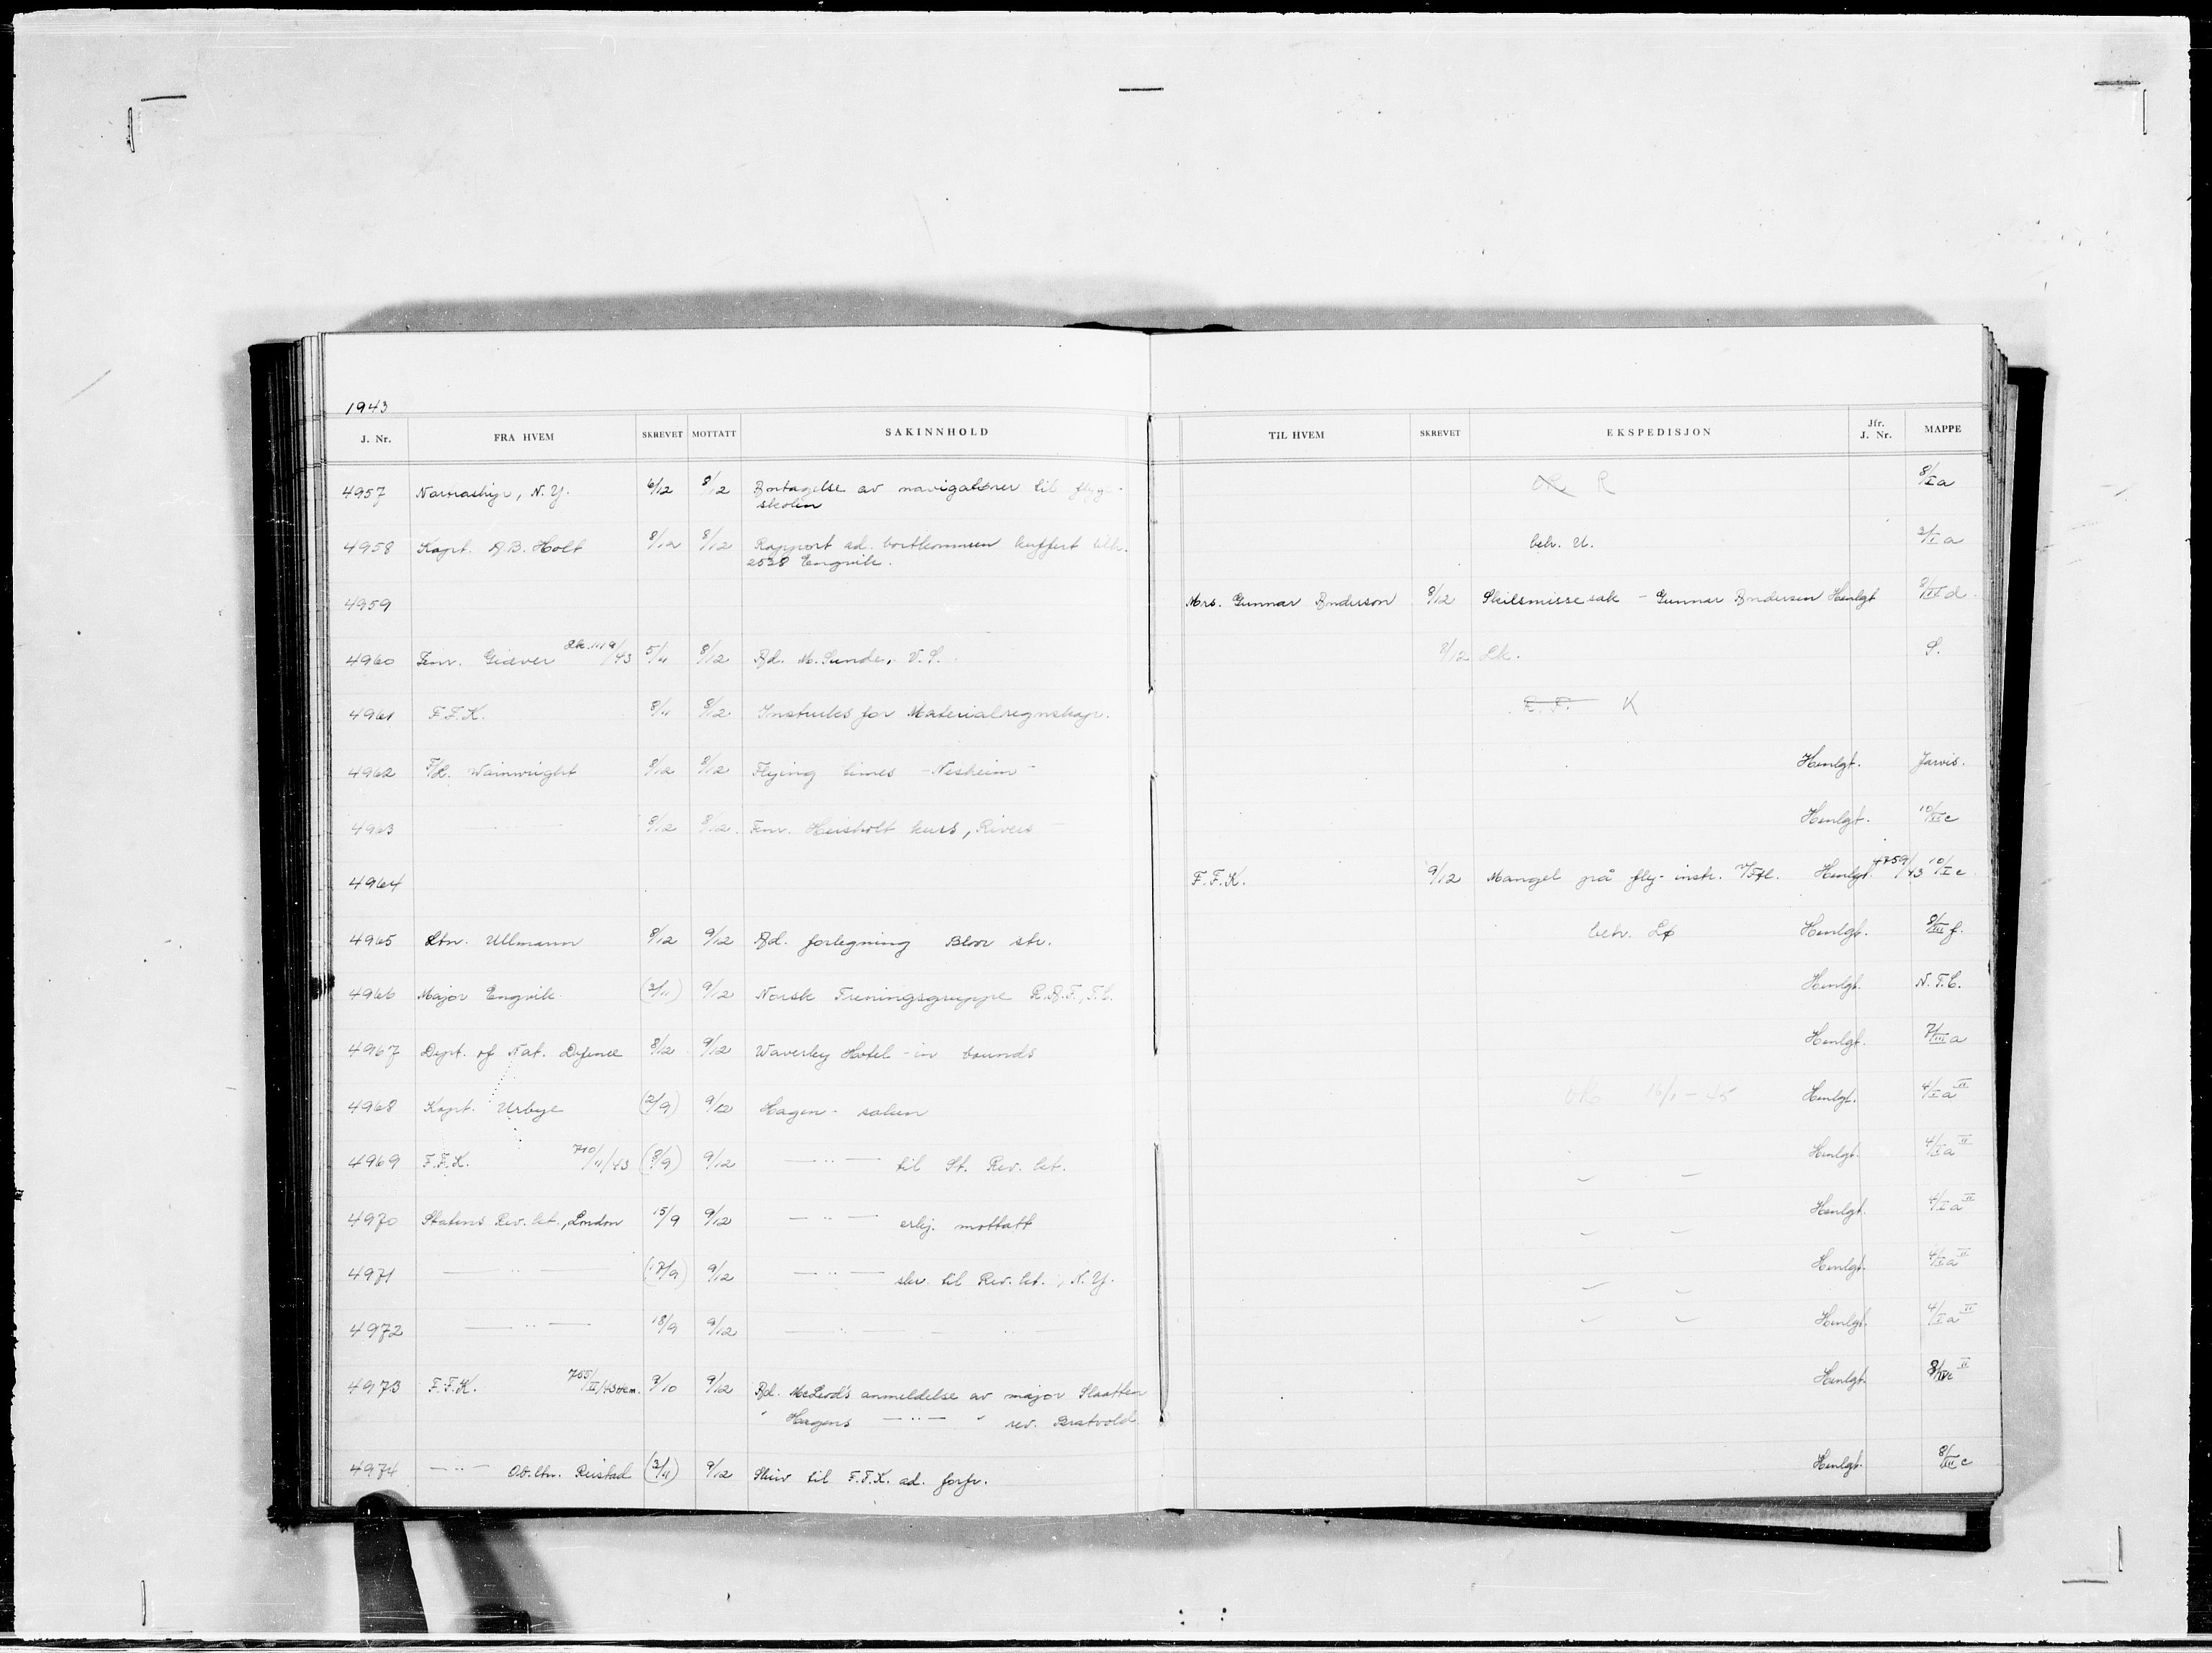 1943
J. Nr. FRA HVEM SKREVET MOTTATT SAKINNHOLD TIL HVEM SKREVET EKSPEDISJON Jfr. J. Nr. MAPPE
4957 Notraship, N.Y. 6/12 8/12 Antagelse av navigatører til flyge- R 8/I a
skolen
4958 Kapt. A.B. Holt 8/12 8/12 Rapport ad. bortkommen kuffert tilh. beh. U. 3/I a
2528 Engvik.
4959 Mrs. Gunnar Anderson 8/12 Skilsmisse sak - Gunnar Andersen Henlgt 8/IV d.
4960 Fenr. Giæver 5/11 8/12 Ad. M. Sunde, V.S. 8/12 Lk. S.
4961 F.F.K. 8/11 8/12 Instruks for Materialregnskap. K
4962 F/Lt. Wainwright 8/12 8/12 Flying times - Nesheim - Henlgt. Jarvis.
4963 — " — 8/12 8/12 Fenr. Heisholt kurs, Rivers Henlgt. 10/II c
4964 F.F.K. 9/12 Mangel på fly-instr. Henlgt. 4759/43 10/I c
4965 Ltn. Ullmann 8/12 9/12 Ad. forlegning Bloor str. beh. Henlgt. 8/III f.
4966 Major Engvik (3/11) 9/12 Norsk Treningsgruppe R.A.F., F.C. Henlgt. N.T.C.
4967 Dept. of Nat. Defence 8/12 9/12 Waverley Hotel - in bounds Henlgt. 7/III a
4968 Kapt. Urbye (2/9) 9/12 Hagen - saken 16/1 - 45 Henlgt. 4/I a II
4969 F.F.K. 710/11/43 (8/9) 9/12 — " — til St. Rev. kt. Henlgt. 4/I a II
4970 Statens Rev. kt., London 15/9 9/12 — " — erkj. mottatt Henlgt. 4/I a II
4971 — " — (17/9) 9/12 — " — skr. til Rev. kt., N.Y. Henlgt. 4/I a II
4972 — " — 18/9 9/12 — " — — " — Henlgt. 4/I a II
4973 F.F.K. 755/II/43 Hem. 9/10 9/12 Ad. McLeod's anmeldelse av major Slaatten Henlgt. II
" Hagens — " — " rev. Bratvold
4974 — " — Ob.ltn. Reistad (3/11) 9/12 Skriv til F.F.K. ad. forfr. Henlgt. 8/III c